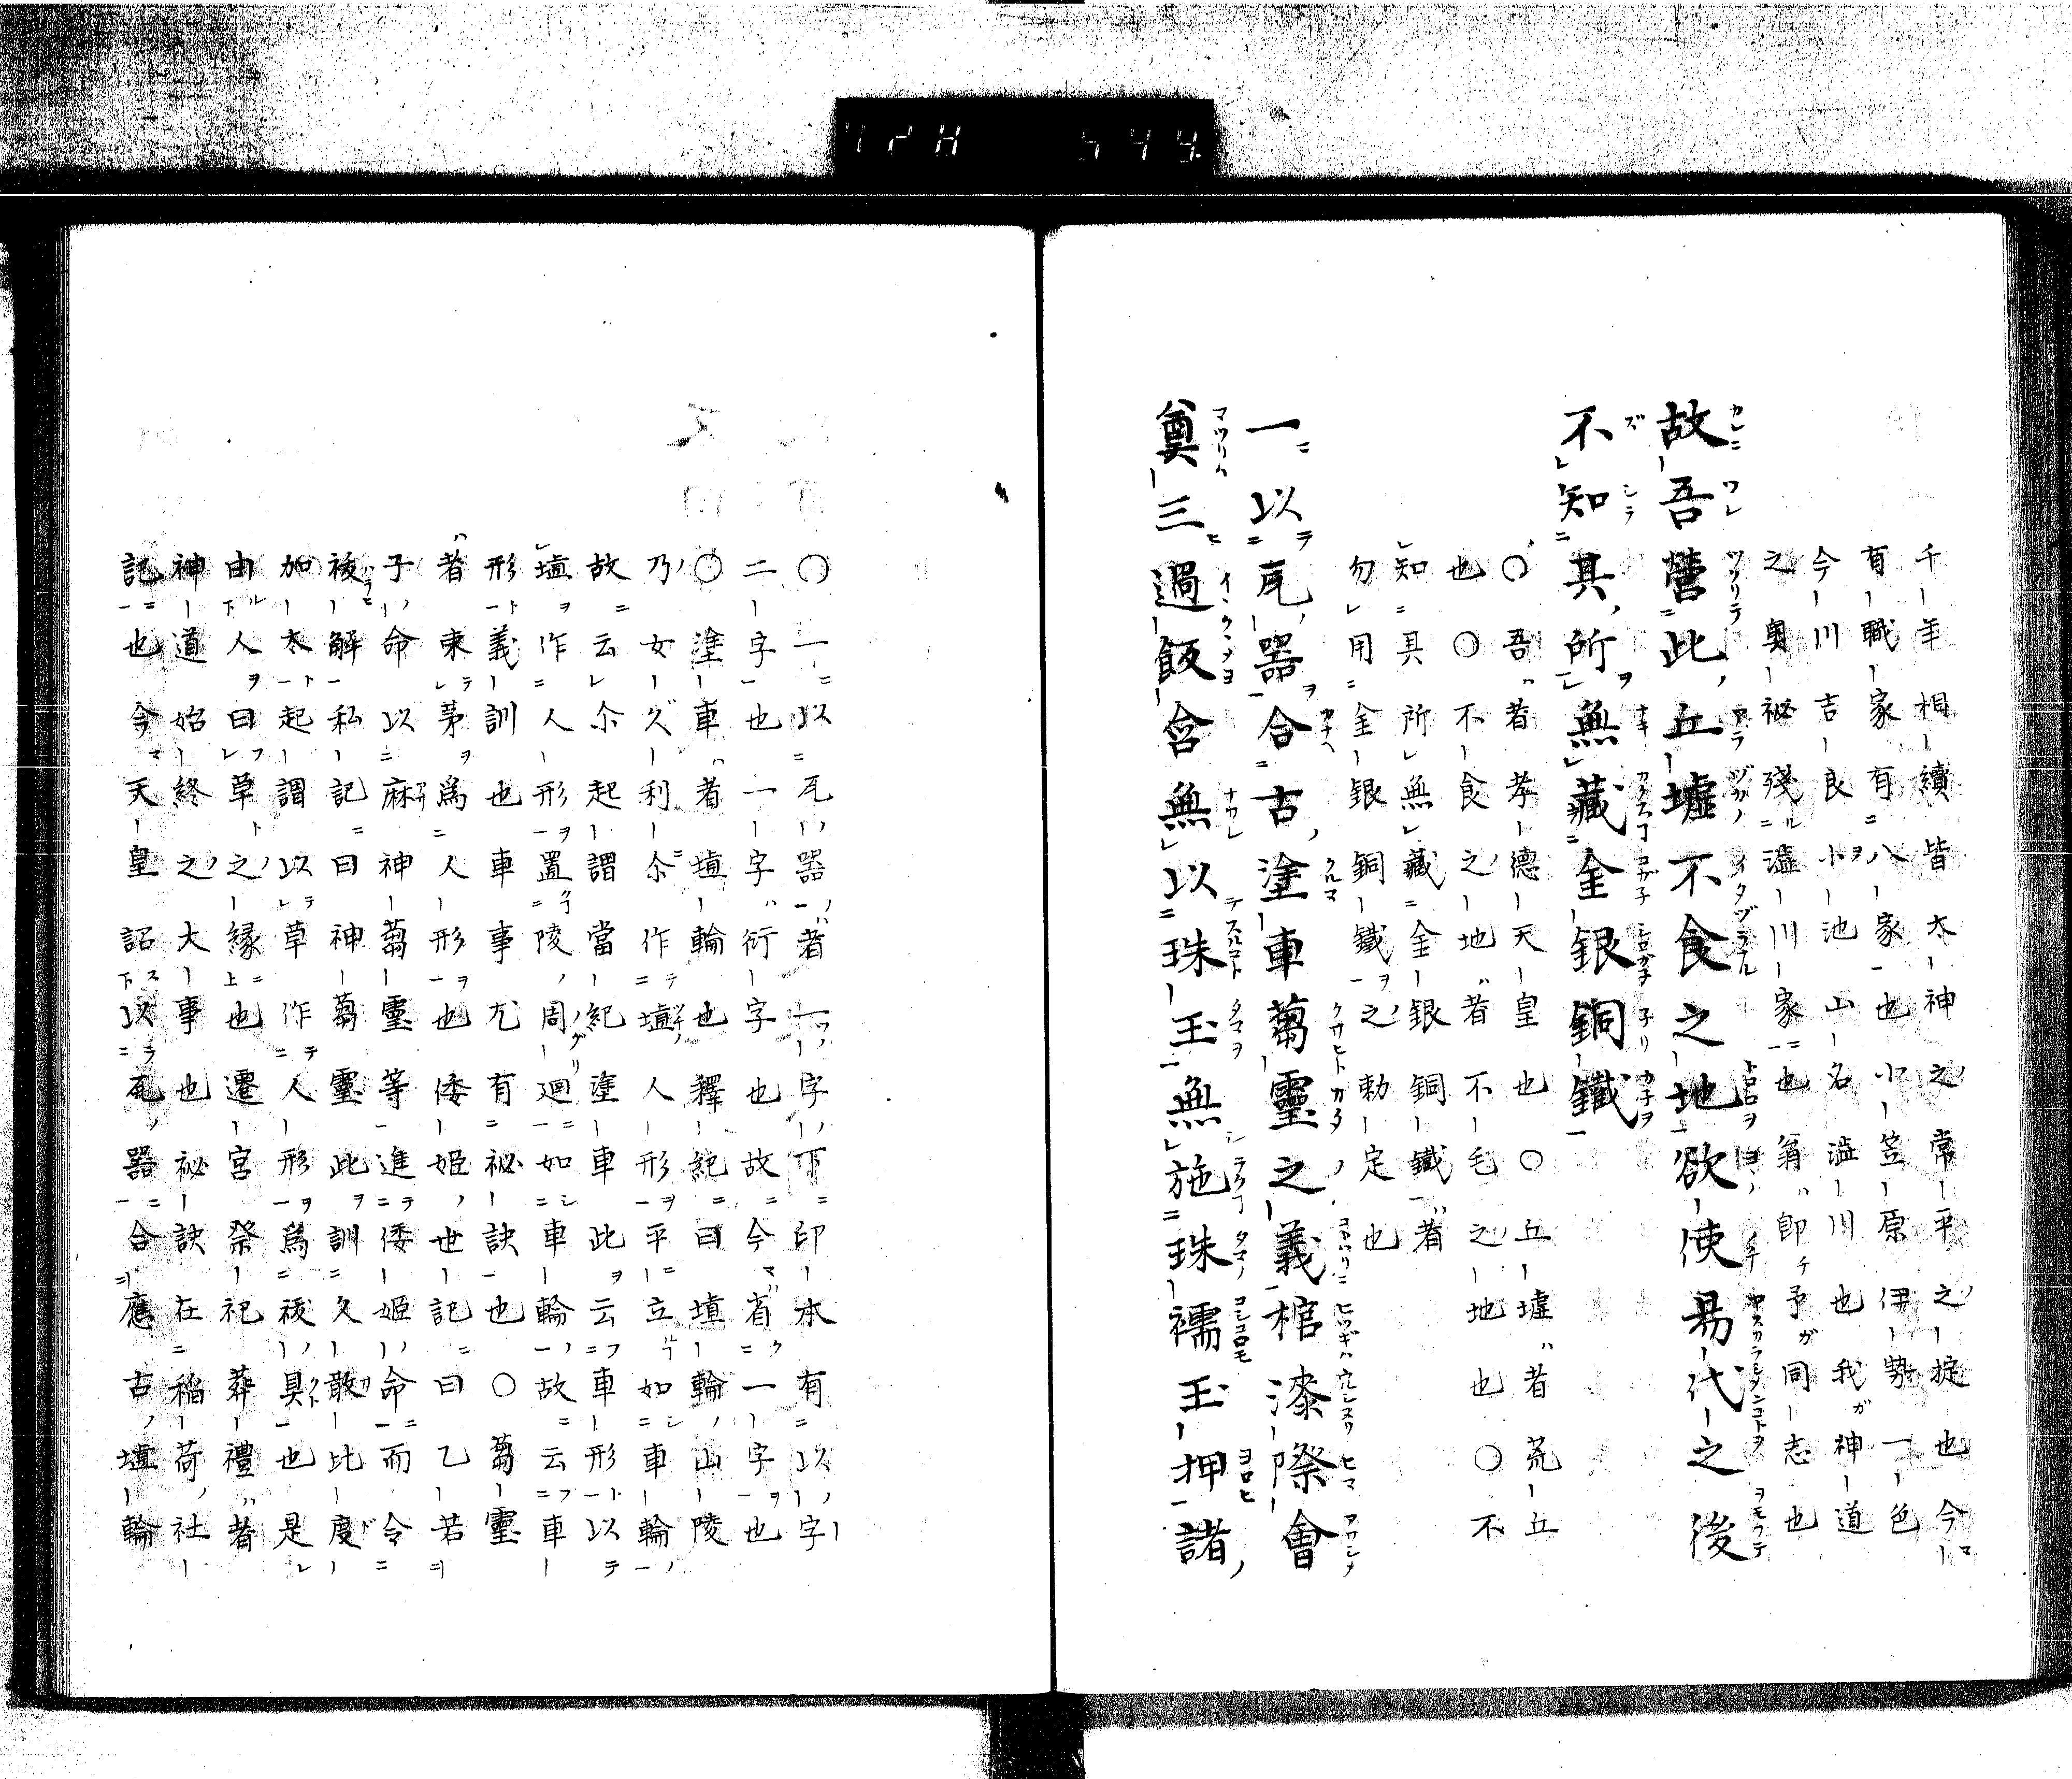 千年相續皆太神之常平之掟也今
有職家有八家也小笠原伊勢一色
今川吉良小池山名澁川也我神道
之奧祕殘澁川家也翁即予同志也
故吾營此丘墟不食之地欲使易代之後
不知其所無藏金銀銅鐵
〇吾者孝德天皇也〇丘墟者荒丘
也〇不食之地者不毛之地也〇不
知其所無藏金銀銅鐵者
勿用金銀銅鐵之勅定也
一以瓦器合古塗車蒭靈之義棺漆際會
奠三過飯含無以珠玉無施珠襦玉押諸
〇一以瓦器者一字下印本有以字
二字也一字衍字也故今省一字也
〇塗車者埴輪也釋紀曰埴輪山陵
乃女久利尒作埴人形平立如車輪
故云尒起謂當紀塗車此云車形以
埴作人形置陵周廻如車輪故云車
形義訓也車事尤有祕訣也〇蒭靈
者束茅爲人形也倭姬世記曰乙若
子命以麻神蒭靈等進倭姬命而令
祓解私記曰神蒭靈此訓久敢比度
加太起謂以草作人形爲祓具也是
由人曰草之緣也遷宮祭祀葬禮者
神道始終之大事也祕訣在稲荷社
記也今天皇詔以瓦器合應古埴輪